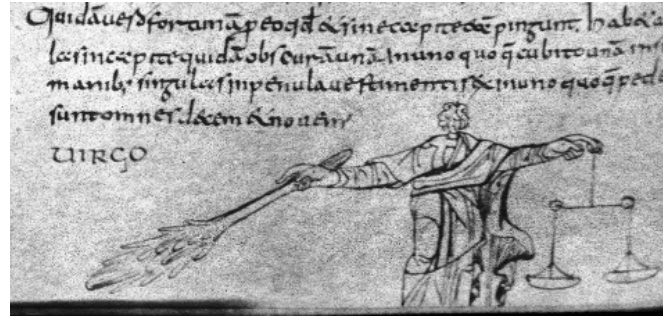 Quidā fortunā p eo qđ & sine capite eā pingunt. hab&
las sine capite quidā obscurā unā. Inuno quo q̄ cubito unā in
manib; singulas inpenula uestimentis & inuno quo q̄ ped
sunt omnes. decem & nouem
UIRGO